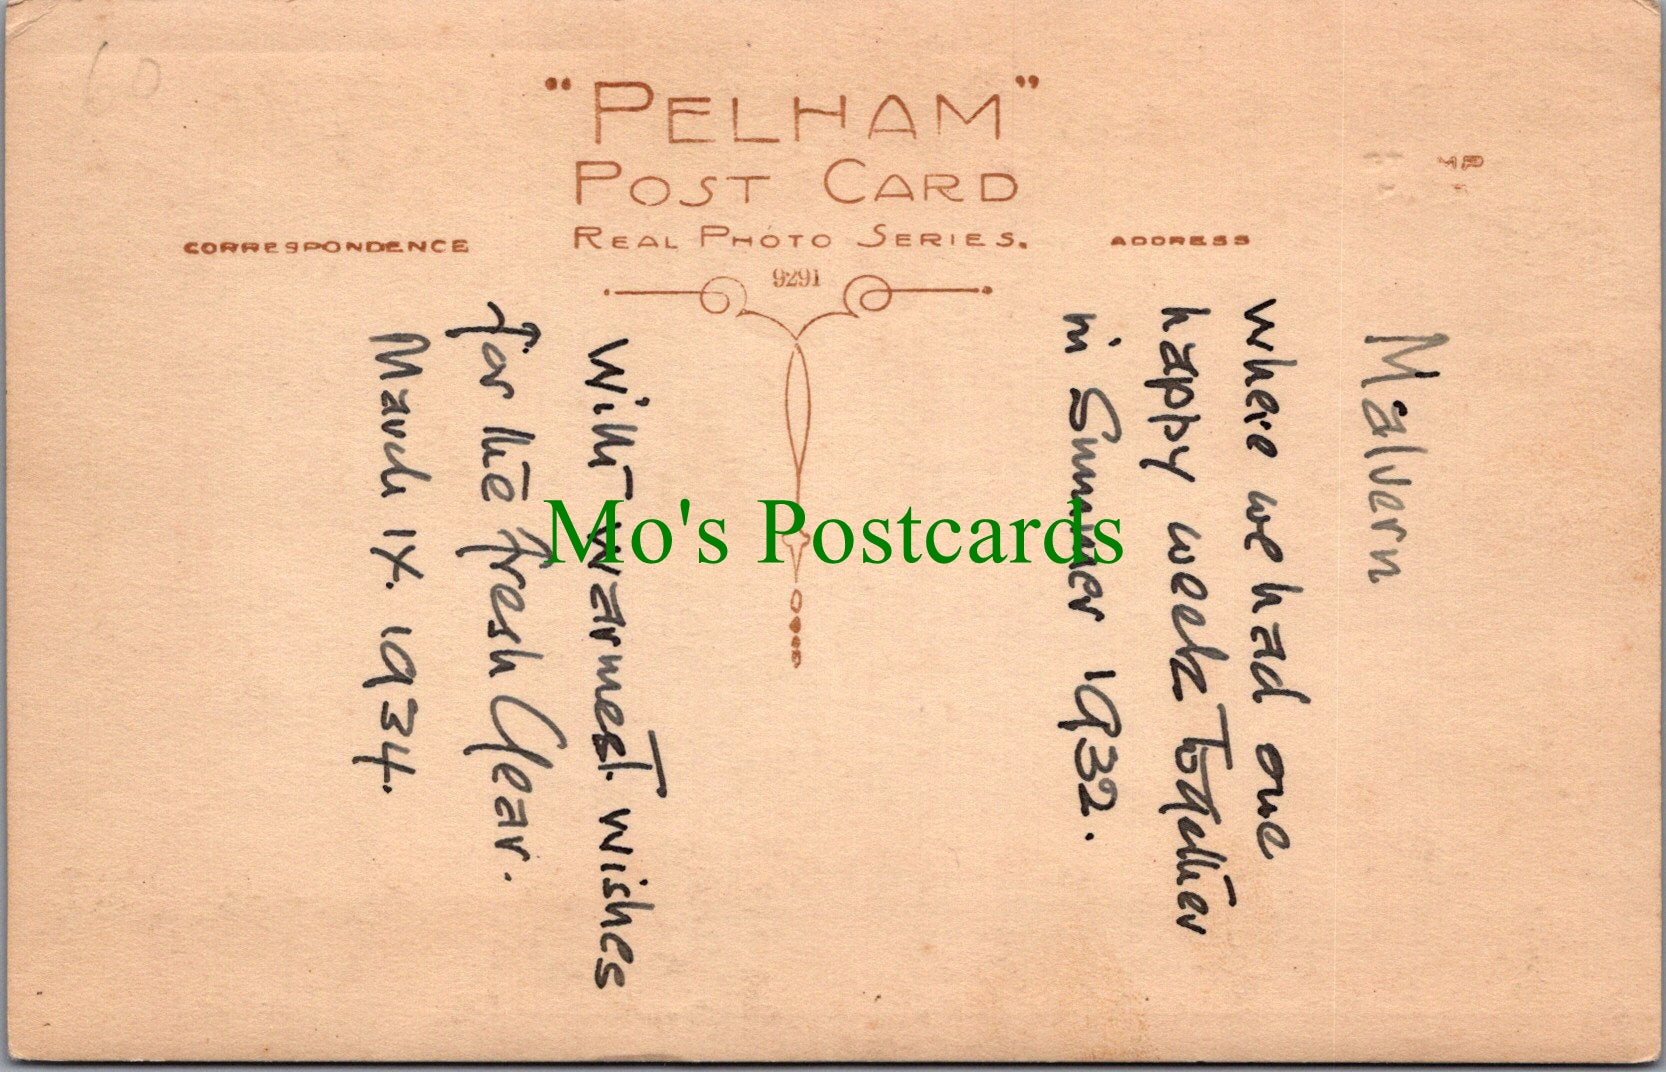 60
"PELHAM"
POST CARD
REAL PHOTO SERIES.
CORRESPONDENCE
ADDRESS
9291
Malvern
where we had one
happy week together
in Summer 1932.
With warmest wishes
for the fresh Year.
March 1X. 1934.
Mo's Postcards